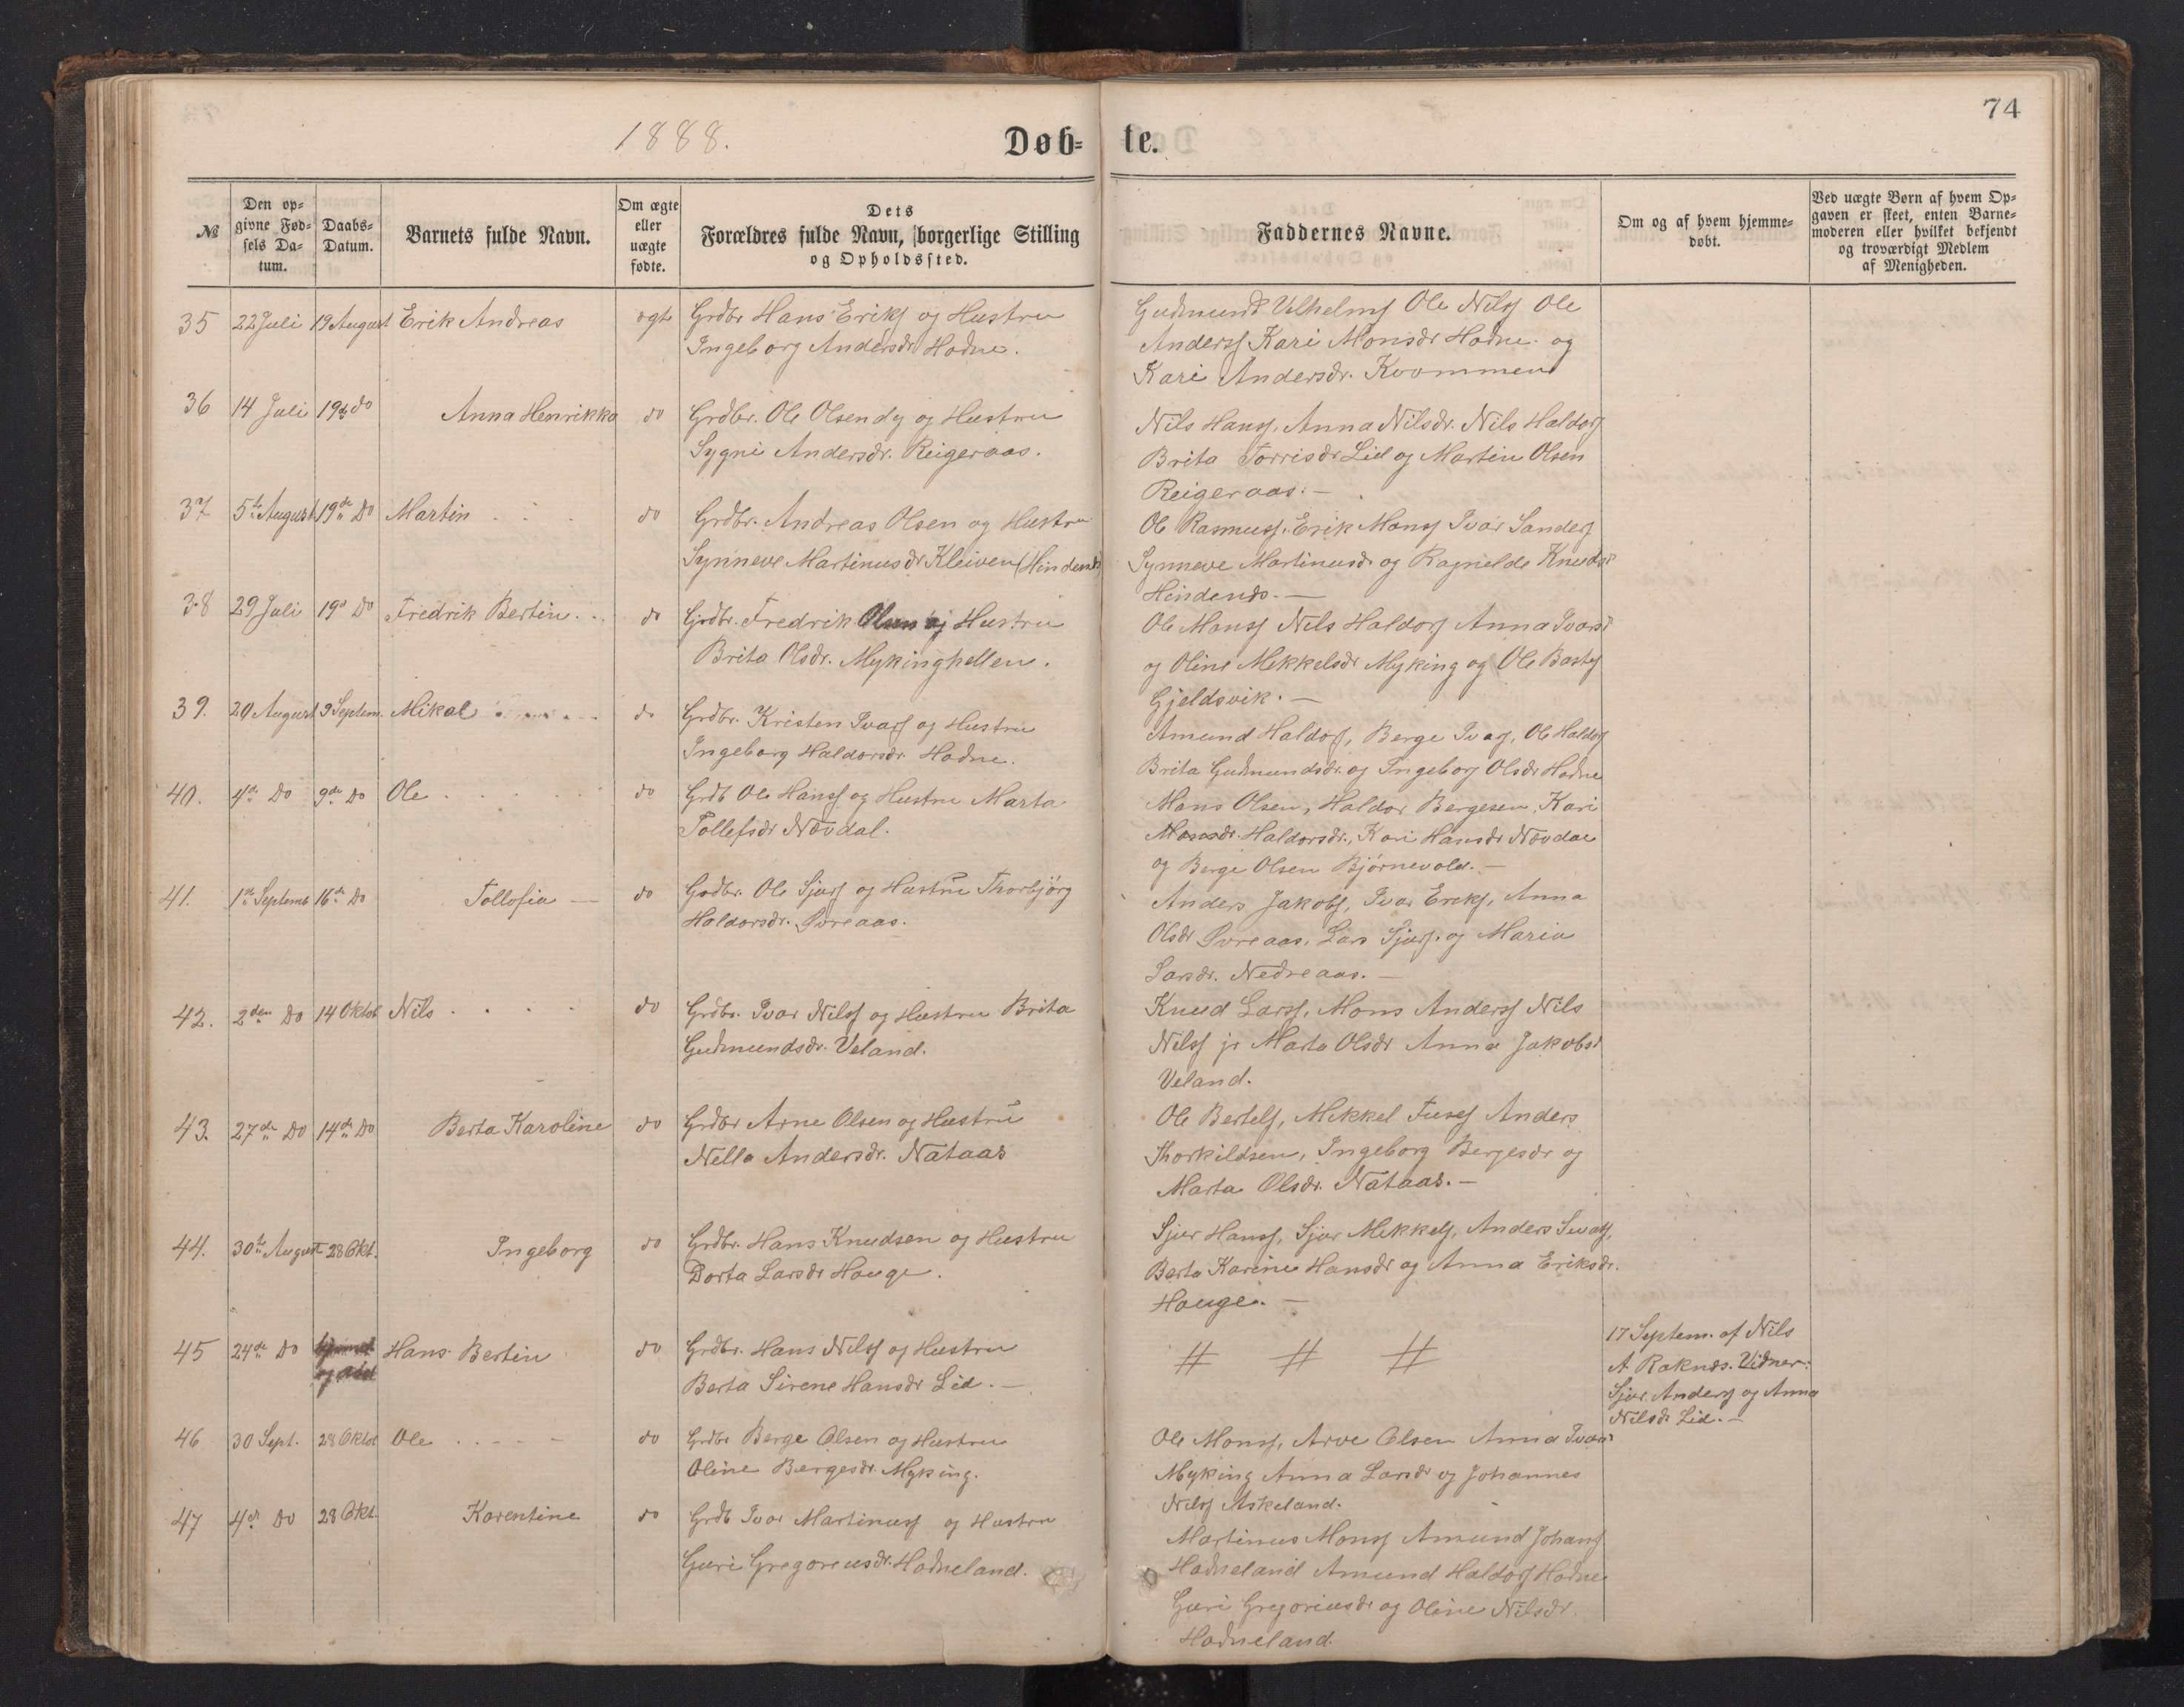 74
1888.
Døb- te.
№
Den op-
givne Fød-
sels Da-
tum.
Daabs-
Datum.
Barnets fulde Navn.
Om ægte
eller
uægte
fødte.
Dets
Forældres fulde Navn, borgerlige Stilling
og Opholdssted.
Faddernes Navne.
Om og af hvem hjemme-
døbt.
Ved uægte Børn af hvem Op-
gaven er skeet, enten Barne-
moderen eller hvilket bekjendt
og troværdigt Medlem
af Menigheden.
35 22 Juli 19 August Erik Andreas ægte Grdbr Hans Eriks og Hustru
Ingeborg Andersdr Hodne.
Gudmund Vilhelms Ole Nils Ole
Anders Kari Monsdr Hodne og
Kari Andersdr. Kvommen
36 14 Juli 19de do Anna Henrikka do Grdbr. Ole Olsen dy og Hustru
Sygni Andersdr. Reigeraas.
Nils Hans, Anna Nilsdr. Nils Haldors
Brita Torrisdr Lid og Martin Olsen
Reigeraas. -
37 5te August 19de Do Martin do Grdbr. Andreas Olsen og Hustru
Synneve Martinusdr Kleiven (Hindenes)
Ole Rasmuss, Erik Mons Ivar Sanders
Synneve Martinusdr og Ragnelde Knudsdr
Hindends. -
38 29 Juli 19d Do Fredrik Bertin do Grdbr. Fredrik Olsen og Hustru
Brita Olsdr. Mykinghellen.
Ole Mons Nils Haldors Anna Ivarsdr
og Oline Mikkelsdr Myking og Ole
Gjeldsvik. -
39. 20 August 9 Septem. Mikal do Grdbr. Kristen Ivars og Hustru
Ingeborg Haldorsdr. Hodne.
Amund Haldors, Berge Ivars, Ole Haldors
Brita Gudmundsdr. og Ingeborg Olsdr Hodne
40. 4de Do 9de Do Ole do Grdb Ole Hans og Hustru Marta
Tollefsdr Nævdal.
Mons Olsen, Haldor Bergesen, Kari
Haldorsdr., Kari Hansdr Nævdal
og Berge Olsen Bjørnevold. -
41. 1ste Septemb 16de Do Tollofia - do Grdbr. Ole Sjurs og Hustru Thorbjørg
Haldorsdr. Øvreaas.
Anders Jakobs, Ivar Eriks, Anna
Olsdr Øvreaas, Lars Sjurs. og Maria
Larsdr. Nedreaas. -
42. 2den Do 14 Oktob Nils do Grdbr. Ivar Nils og Hustru Brita
Gudmundsdr. Veland.
Knud Larss, Mons Anders Nils
Nils jr Marta Olsdr Anna Jakobsdr
Veland.
43. 27de Do 14de Do Berta Karoline do Grdbr Arne Olsen og Hustru
Nella Andersdr. Nataas
Ole Bertels, Mikkel Anders
Thorkildsen, Ingeborg Bergesdr og
Marta Olsdr. Nataas. -
44. 30te August 28 Okt. Ingeborg do Grdbr. Hans Knudsen og Hustru
Dorta Larsdr Hauge.
Sjur Hans, Sjur Mikkels, Anders
Berta Karine Hansdr og Anna Eriksdr.
Hauge. -
45 24de Do Hans Bertin do Grdbr. Hans Nils og Hustru
Berta Sirene Hansdr Lid. -
# # #
17 Septem. af Nils
A. Raknes. Vidner:
Sjur Anders og Anna
Nilsdr Lid. -
46 30 Sept. 28 Oktob Ole do Grdbr Berge Olsen og Hustru
Oline Bergesdr. Myking.
Ole Mons, Arve Olsen Anna Ivarsdr
Myking Anna Larsdr og Johannes
Nils Askeland.
47 4de Do 28 Okt. Karentine do Grdb Ivar Martinus og Hustru
Guri Gregoreusdr. Hodneland.
Martinus Mons Amund Johans
Hodneland Amund Haldors Hodne
Guri Gregoriusdr og Oline Nilsdr.
Hodneland.